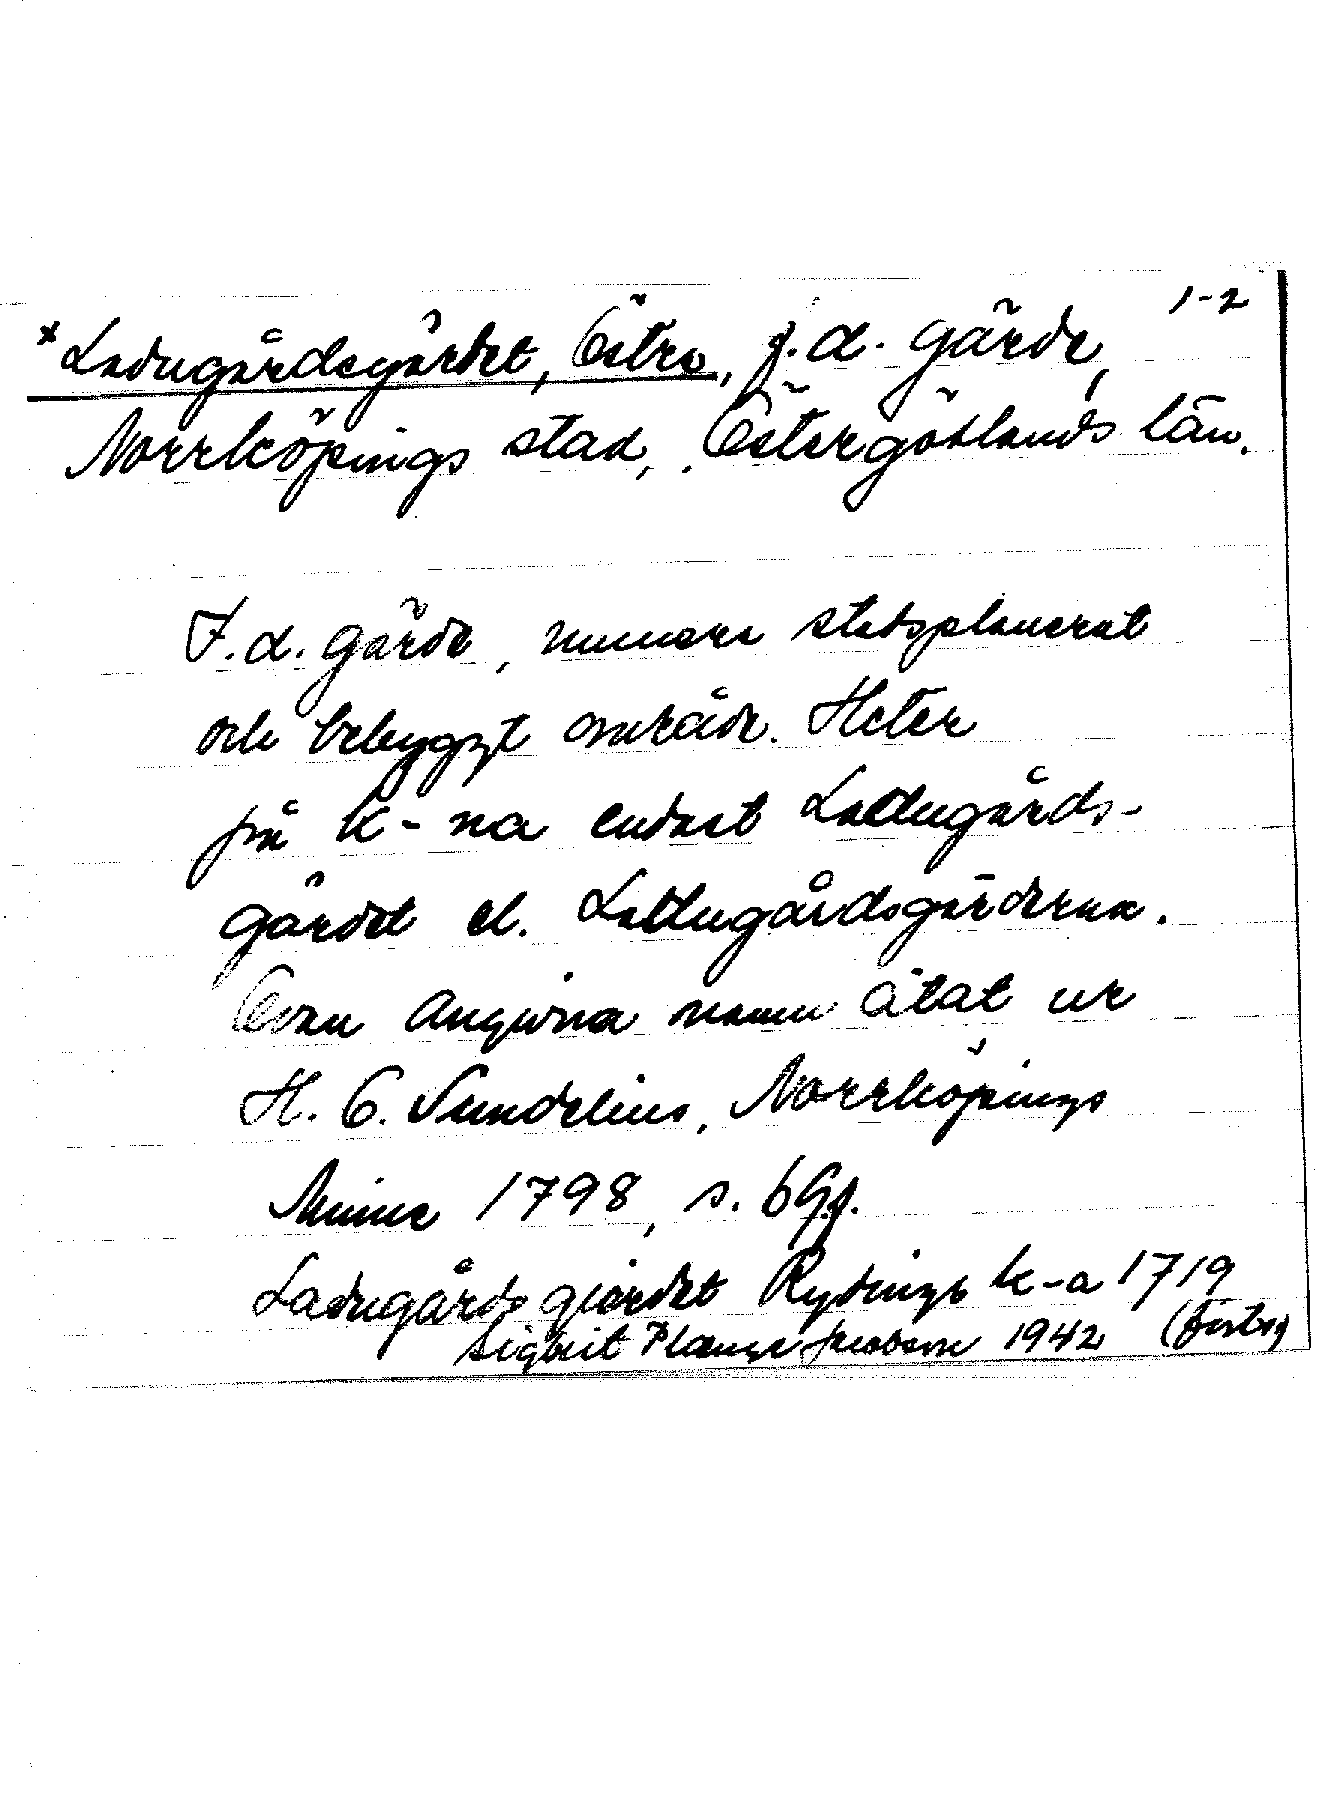 1-2
*Ladugårdsgärdet, Östra, f.d. gärde,
Norrköpings stad, Östergötlands län.
F.d. gärde, numera stadsplanerat
och bebyggt område. Heter
på k-na endast Ladugårds-
gärdet el. Ladugårdsgärderna.
Ovan angivna namn citat ur
H. O. Sundelius, Norrköpings
Minne 1798, s. 69f.
Ladugårds giärdet Rydings k-a 1719
Sigbrit Plænge Jacobson 1942 (forts)